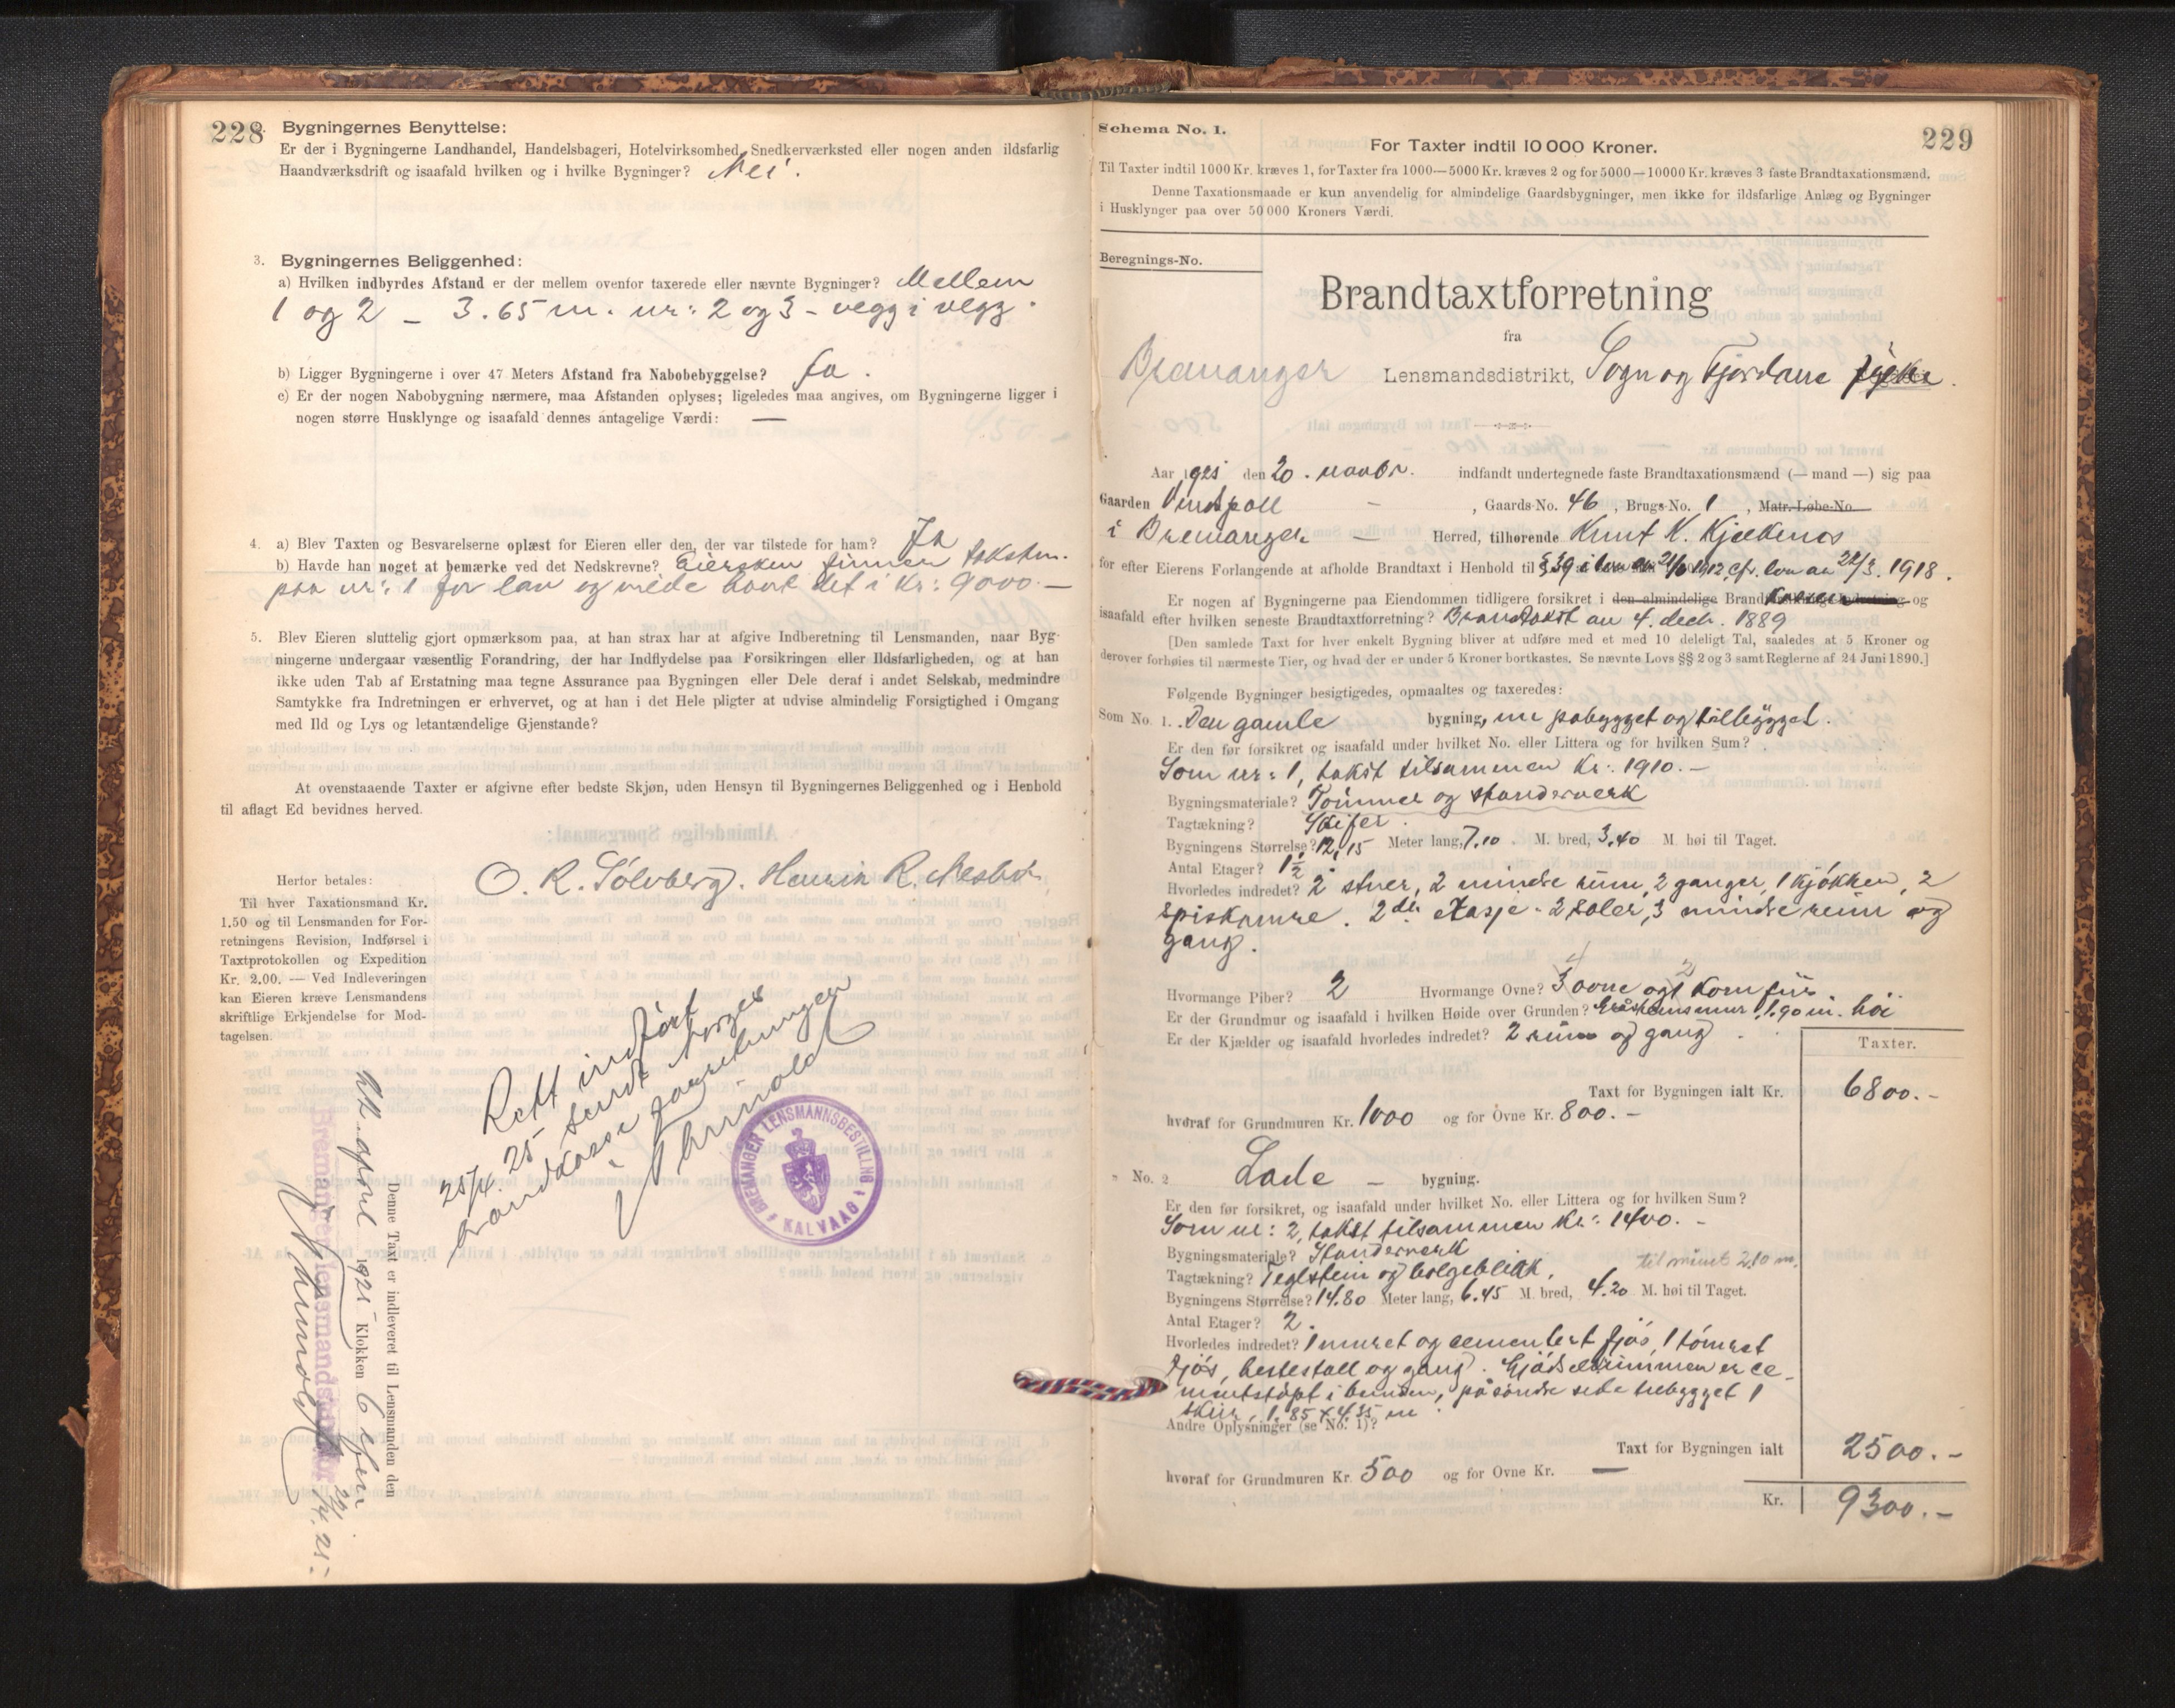 228
2. Bygningernes Benyttelse:
Er der i Bygningerne Landhandel, Handelsbageri, Hotelvirksomhed, Snedkerværksted eller nogen anden ildsfarlig
Haandværksdrift og isaafald hvilken og i hvilke Bygninger? Nei.
3. Bygningernes Beliggenhed:
a) Hvilken indbyrdes Afstand er der mellem ovenfor taxerede eller nævnte Bygninger? Mellem
1 og 2 – 3.65 m. nr: 2 og 3 – vegg i vegg.
b) Ligger Bygningerne i over 47 Meters Afstand fra Nabobebyggelse? Ja.
c) Er der nogen Nabobygning nærmere, maa Afstanden oplyses; ligeledes maa angives, om Bygningerne ligger i
nogen større Husklynge og isaafald dennes antagelige Værdi: —
4. a) Blev Taxten og Besvarelserne oplæst for Eieren eller den, der var tilstede for ham? Ja
b) Havde han noget at bemærke ved det Nedskrevne? Eiersken finner taksten
paa nr: 1 for lav og vilde havt det i kr: 9000.—
5. Blev Eieren sluttelig gjort opmærksom paa, at han strax har at afgive Indberetning til Lensmanden, naar Byg-
ningerne undergaar væsentlig Forandring, der har Indflydelse paa Forsikringen eller Ildsfarligheden, og at han
ikke uden Tab af Erstatning maa tegne Assurance paa Bygningen eller Dele deraf i andet Selskab, medmindre
Samtykke fra Indretningen er erhvervet, og at han i det Hele pligter at udvise almindelig Forsigtighed i Omgang
med Ild og Lys og letantændelige Gjenstande?
At ovenstaaende Taxter er afgivne efter bedste Skjøn, uden Hensyn til Bygningernes Beliggenhed og i Henhold
til aflagt Ed bevidnes herved.
O. R. Sølvberg. Henrik R.
Herfor betales:
Til hver Taxationsmand Kr.
1.50 og til Lensmanden for For-
retningens Revision, Indførsel i
Taxtprotokollen og Expedition
Kr. 2.00. — Ved Indleveringen
kan Eieren kræve Lensmandens
skriftlige Erkjendelse for Mod-
tagelsen.
Rett indført
25/4 25 sendt Norges
brandkasse forretningen
BREMANGER LENSMANNSBESTILLNG
KALVAAG
Denne Taxt er indleveret til Lensmanden den
24. april 1925 Klokken 6 efm
Bremanger lensmandskontor 24/4. 25
229
Schema No. 1.
For Taxter indtil 10 000 Kroner.
Til Taxter indtil 1000 Kr. kræves 1, for Taxter fra 1000—5000 Kr. kræves 2 og for 5000—10000 Kr. kræves 3 faste Brandtaxationsmænd.
Denne Taxationsmaade er kun anvendelig for almindelige Gaardsbygninger, men ikke for ildsfarlige Anlæg og Bygninger
i Husklynger paa over 50 000 Kroners Værdi.
Beregnings-No.
Brandtaxtforretning
fra
Bremanger Lensmandsdistrikt, Sogn og Fjordane fylke.
Aar 1925 den 20. novbr. indfandt undertegnede faste Brandtaxationsmænd (— mand —) sig paa
Gaarden Vindspoll – , Gaards-No. 46, Brugs-No. 1, Matr.-Løbe-No.
i Bremanger — Herred, tilhørende Knut K.
for efter Eierens Forlangende at afholde Brandtaxt i Henhold til § 39 i lov av 21/6 1912, cfr. lov av 22/3. 1918.
Er nogen af Bygningerne paa Eiendommen tidligere forsikret i den almindelige Brandkassen og
isaafald efter hvilken seneste Brandtaxtforretning? Brandtakst av 4. decb. 1889
[Den samlede Taxt for hver enkelt Bygning bliver at udføre med et med 10 deleligt Tal, saaledes at 5 Kroner og
derover forhøies til nærmeste Tier, og hvad der er under 5 Kroner bortkastes. Se nævnte Lovs §§ 2 og 3 samt Reglerne af 24 Juni 1890.]
Følgende Bygninger besigtigedes, opmaaltes og taxeredes:
Som No. 1. Den gamle bygning, nu påbygget og tilbygget.
Er den før forsikret og isaafald under hvilket No. eller Littera og for hvilken Sum?
Som nr: 1, takst tilsammen kr. 1910.—
Bygningsmateriale? Tømmer og standerverk
Tagtækning? Skifer.
Bygningens Størrelse? 12,15 Meter lang, 7.10 M. bred, 3.40 M. høi til Taget.
Antal Etager? 1½
Hvorledes indredet? 2 stuer, 2 mindre rum, 2 ganger, 1 kjøkken, 2
spiskamre. 2den etasje - 2 saler, 3 mindre rum og
gang.
Hvormange Piber? 2 Hvormange Ovne? 3 4 ovne og 1 2 komfür
Er der Grundmur og isaafald i hvilken Høide over Grunden? Gråstensmur 1.90 m. høi
Er der Kjælder og isaafald hvorledes indredet? 2 rum og gang.
Taxter.
Taxt for Bygningen ialt Kr. 6800.—
hvoraf for Grundmuren Kr. 1000 og for Ovne Kr. 800.—
" No. 2 Lade – bygning.
Er den før forsikret, og isaafald under hvilket No. eller Littera og for hvilken Sum?
Som nr: 2, takst tilsammen kr: 1400.—
Bygningsmateriale? Standerverk
Tagtækning? Teglstein og bølgeblikk. til mønet 2,10 m.
Bygningens Størrelse? 14.80 Meter lang, 6.45 M. bred, 4.20 M. høi til Taget.
Antal Etager? 2.
Hvorledes indredet? 1 muret og cementert fjøs, 1 tømret
fjøs, hestestall og gang. Gjødselrummen er ce-
mentstøpt i bunden, på søndre side tilbygget 1
skur, 1.85 x 4.35 m.
Andre Oplysninger (se No. 1)?
Taxt for Bygningen ialt 2500.—
hvoraf for Grundmuren Kr. 500 og for Ovne Kr. —
Kr. 9300.—